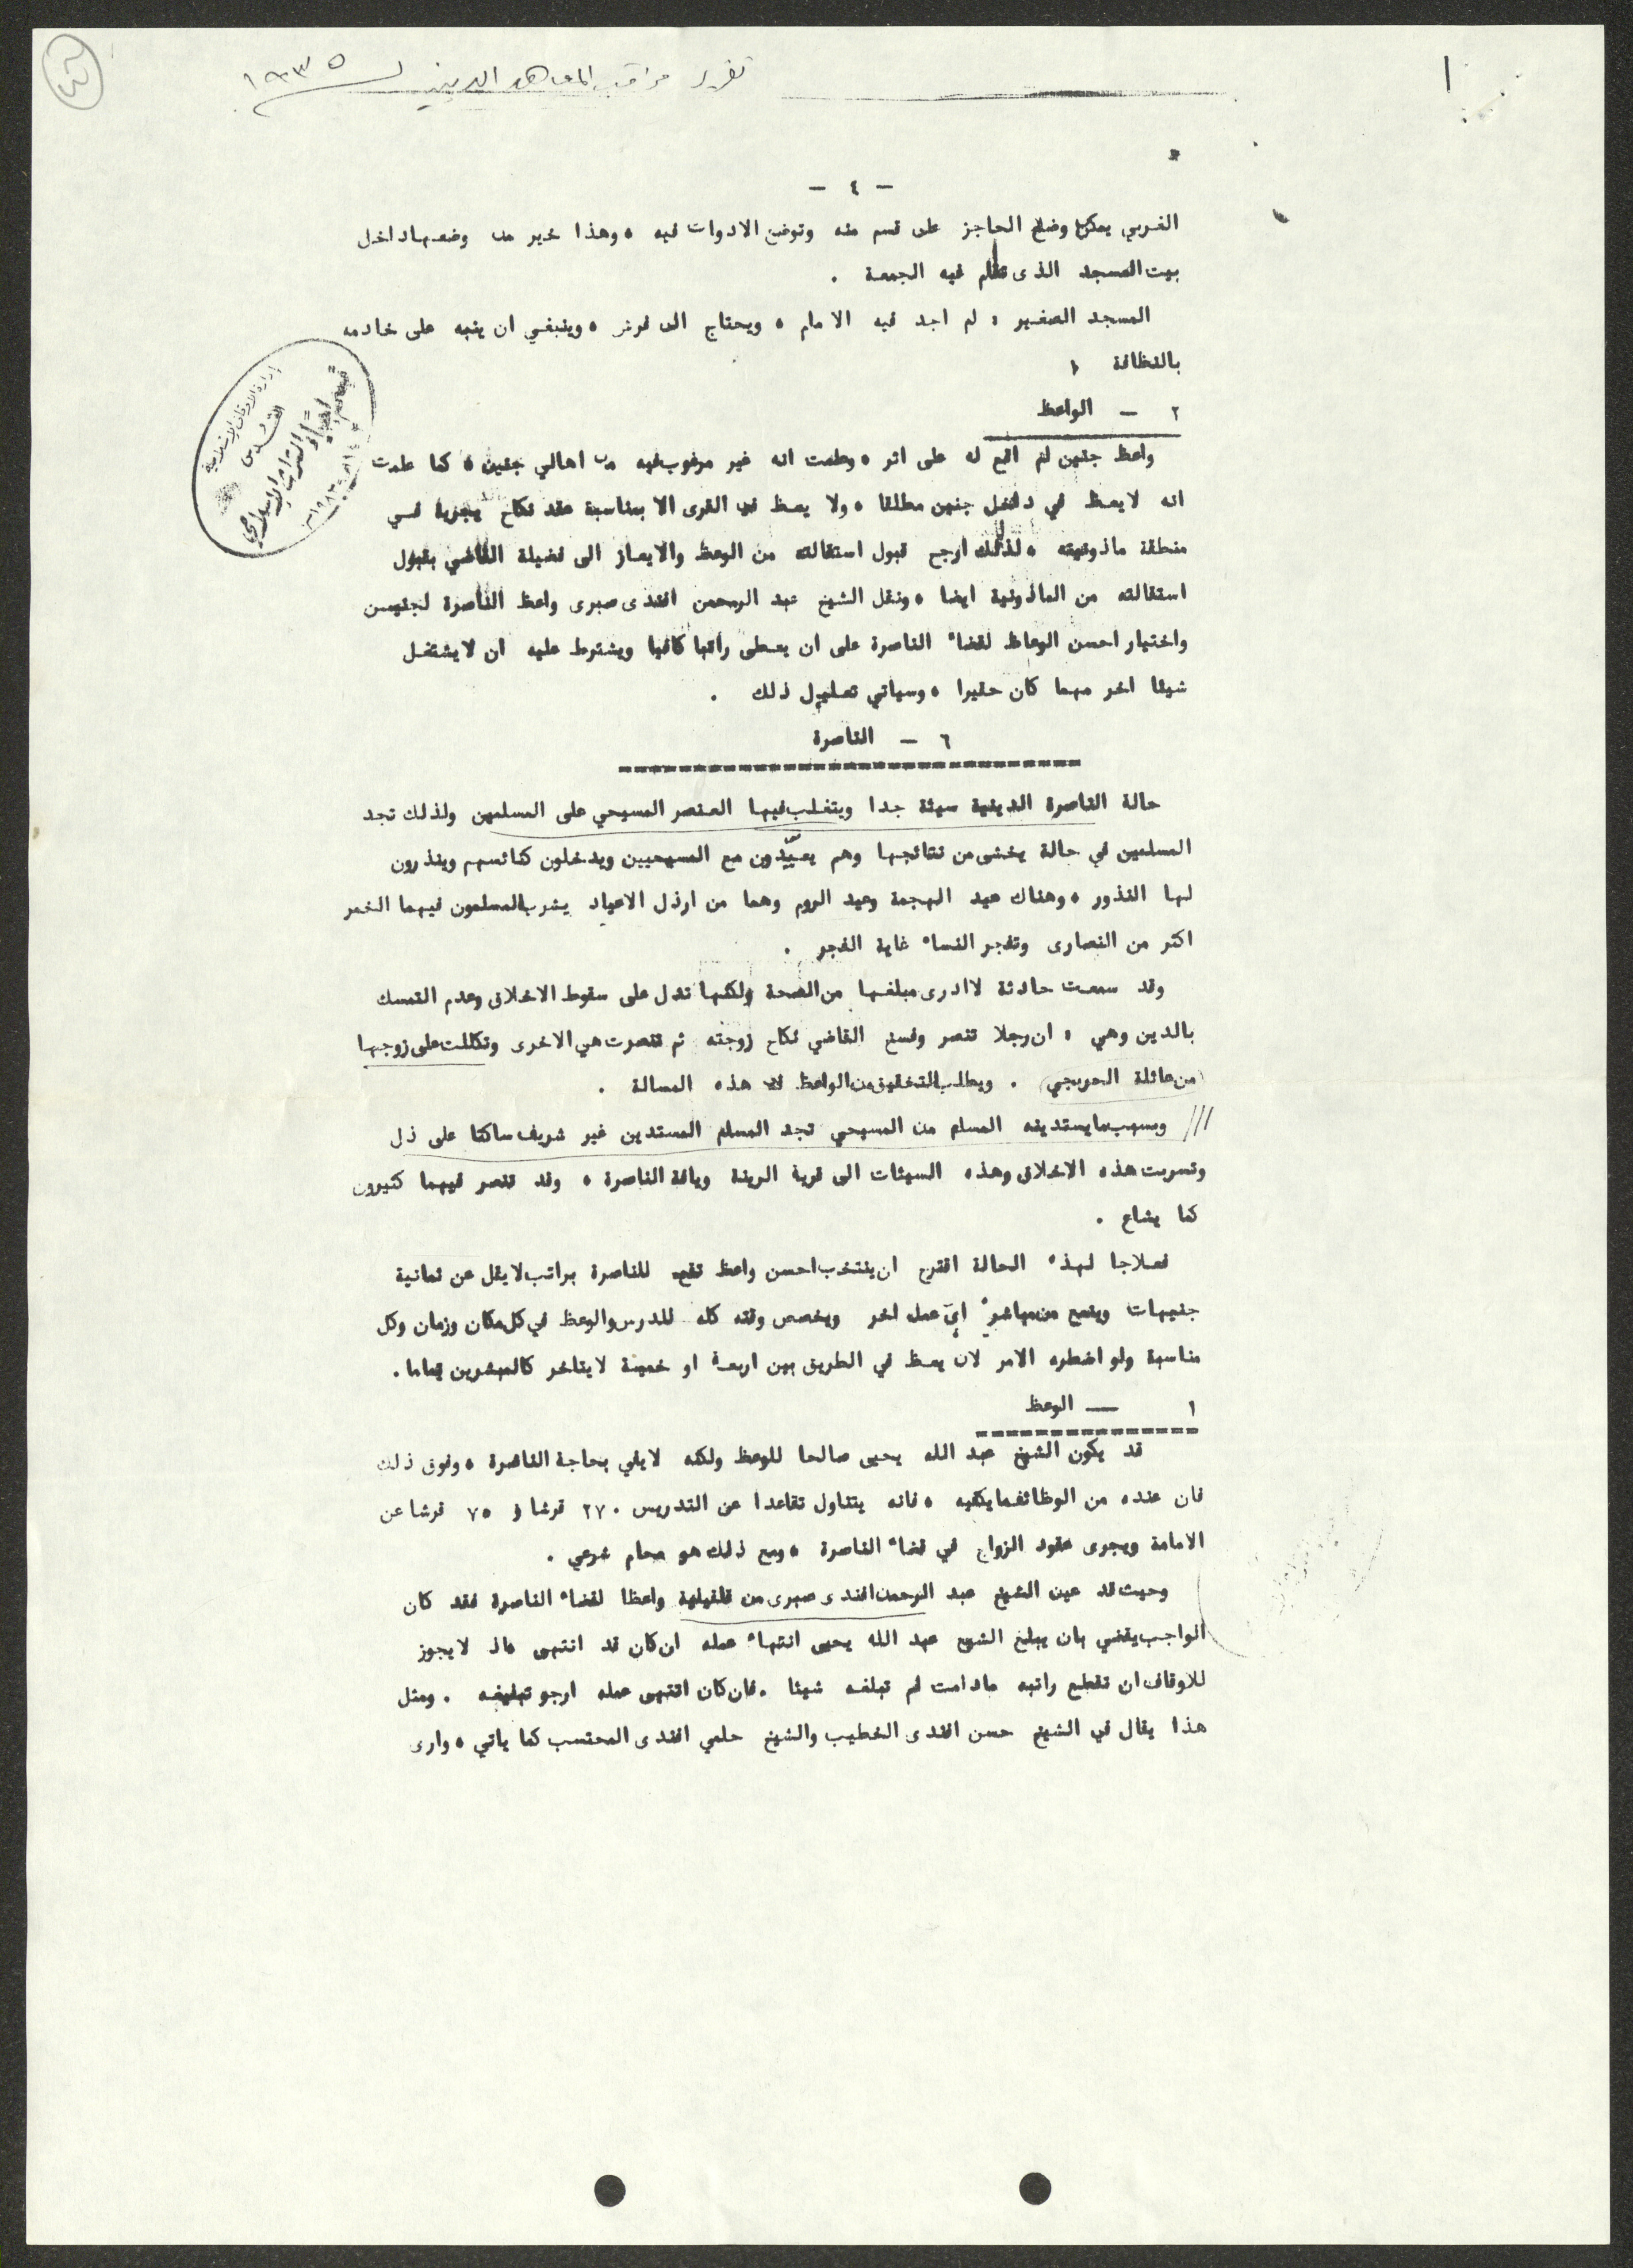 تقرير مراقب المعاهد الدينية لسنة ١٩٣٥
- ٤ -
الغربي يمكن وضع الحاجز على قسم منه وتوضع الادوات فيه ، وهذا خير من وضعها داخل
بيت المسجد الذى تقام فيه الجمعة .
المسجد الصغير : لم اجد فيه الامام ، ويحتاج الى فرش ، وينبغي ان ينبه على خادمه
بالنظافة .
٢ - الواعظ
واعظ جنين لم اقع له على اثر ، وعلمت انه غير مرغوب فيه من اهالي جنين ، كما علمت
انه لا يعظ في داخل جنين مطلقا ، ولا يعظ في القرى الا بمناسبة عقد نكاح يجريه فــي
منطقة ماذونيته ، لذلك ارجح قبول استقالته من الوعظ والايعاز الى فضيلة القاضي بقبول
استقالته من الماذونية ايضا ، ونقل الشيخ عبد الرحمن افندى صبرى واعظ الناصرة لجنيــن
واختيار احسن الوعاظ لقضاء الناصرة على ان يعطى راتبا كافيا ويشترط عليه ان لا يشتغــل
شيئا اخر مهما كان حقيرا ، وسياتي تعليل ذلك .
٦ - الناصرة
حالة الناصرة الدينية سيئة جدا ويتغلب فيها العنصر المسيحي على المسلمين ولذلك تجد
المسلمين في حالة يخشى من نتائجها وهم يعيّدون مع المسيحيين ويدخلون كنائسهم وينذرون
لها النذور ، وهناك عيد الهجمة وعيد الروم وهما من ارذل الاعياد يشرب المسلمون فيهما الخمر
اكثر من النصارى وتفجر النساء غاية الفجر .
وقد سمعت حادثة لا ادرى مبلغها من الصحة ولكنها تدل على سقوط الاخلاق وعدم التمسك
بالدين وهي : ان رجلا تنصر وفسخ القاضي نكاح زوجته ثم تنصرت هي الاخرى وتكللت على زوجها
(من عائلة الحريجي) . ويطلب التحقيق من الواعظ في هذه المسالة .
وبسبب ما يستدينه المسلم من المسيحي تجد المسلم المستدين غير شريف ساكتا على ذل
وتسربت هذه الاخلاق وهذه السيئات الى قرية الرينة ويافة الناصرة ، وقد تنصر فيهما كثيرون
كما يشاع .
فعلاجا لهذه الحالة اقترح ان ينتخب احسن واعظ للناصرة براتب لا يقل عن ثمانية
جنيهات ويمنع من مباشرة ايّ عمل اخر ويخصص وقته كله للدرس والوعظ في كل مكان وزمان وكل
مناسبة ولو اضطره الامر لان يعظ في الطريق بين اربعة او خمسة لا يتاخر كالمبشرين تماما .
١ — الوعظ
قد يكون الشيخ عبد الله يحيى صالحا للوعظ ولكنه لا يفي بحاجة الناصرة ، وفوق ذلك
فان عنده من الوظائف ما يكفيه ، فانه يتناول تقاعدا عن التدريس ٢٧٠ قرشا و ٧٥ قرشا عن
الامامة ويجرى عقود الزواج في قضاء الناصرة ، ومع ذلك هو محام شرعي .
وحيث قد عين الشيخ عبد الرحمن افندى صبرى من قلقيلية واعظا لقضاء الناصرة فقد كان
الواجب يقضي بان يبلغ الشيخ عبد الله يحيى انتهاء عمله ان كان قد انتهى لا يجوز
للاوقاف ان تقطع راتبه مادامت لم تبلغه شيئا . فان كان انتهى عمله ارجو تبليغه . ومثل
هذا يقال في الشيخ حسن افندى الخطيب والشيخ حلمي افندى المحتسب كما ياتي ، وارى
إدارة الأوقاف الإسلامية
القدس
قسم إحياء التراث الإسلامي